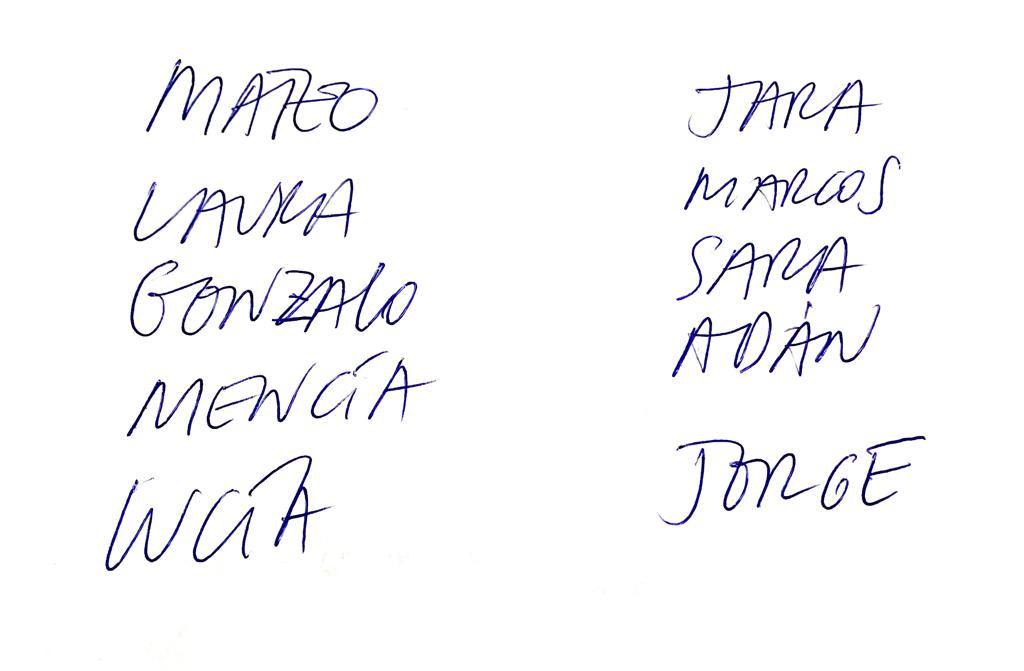 MATEO
LAURA
GONZALO
MENCÍA
LUCÍA
JARA
MARCOS
SARA
ADÁN
JORGE